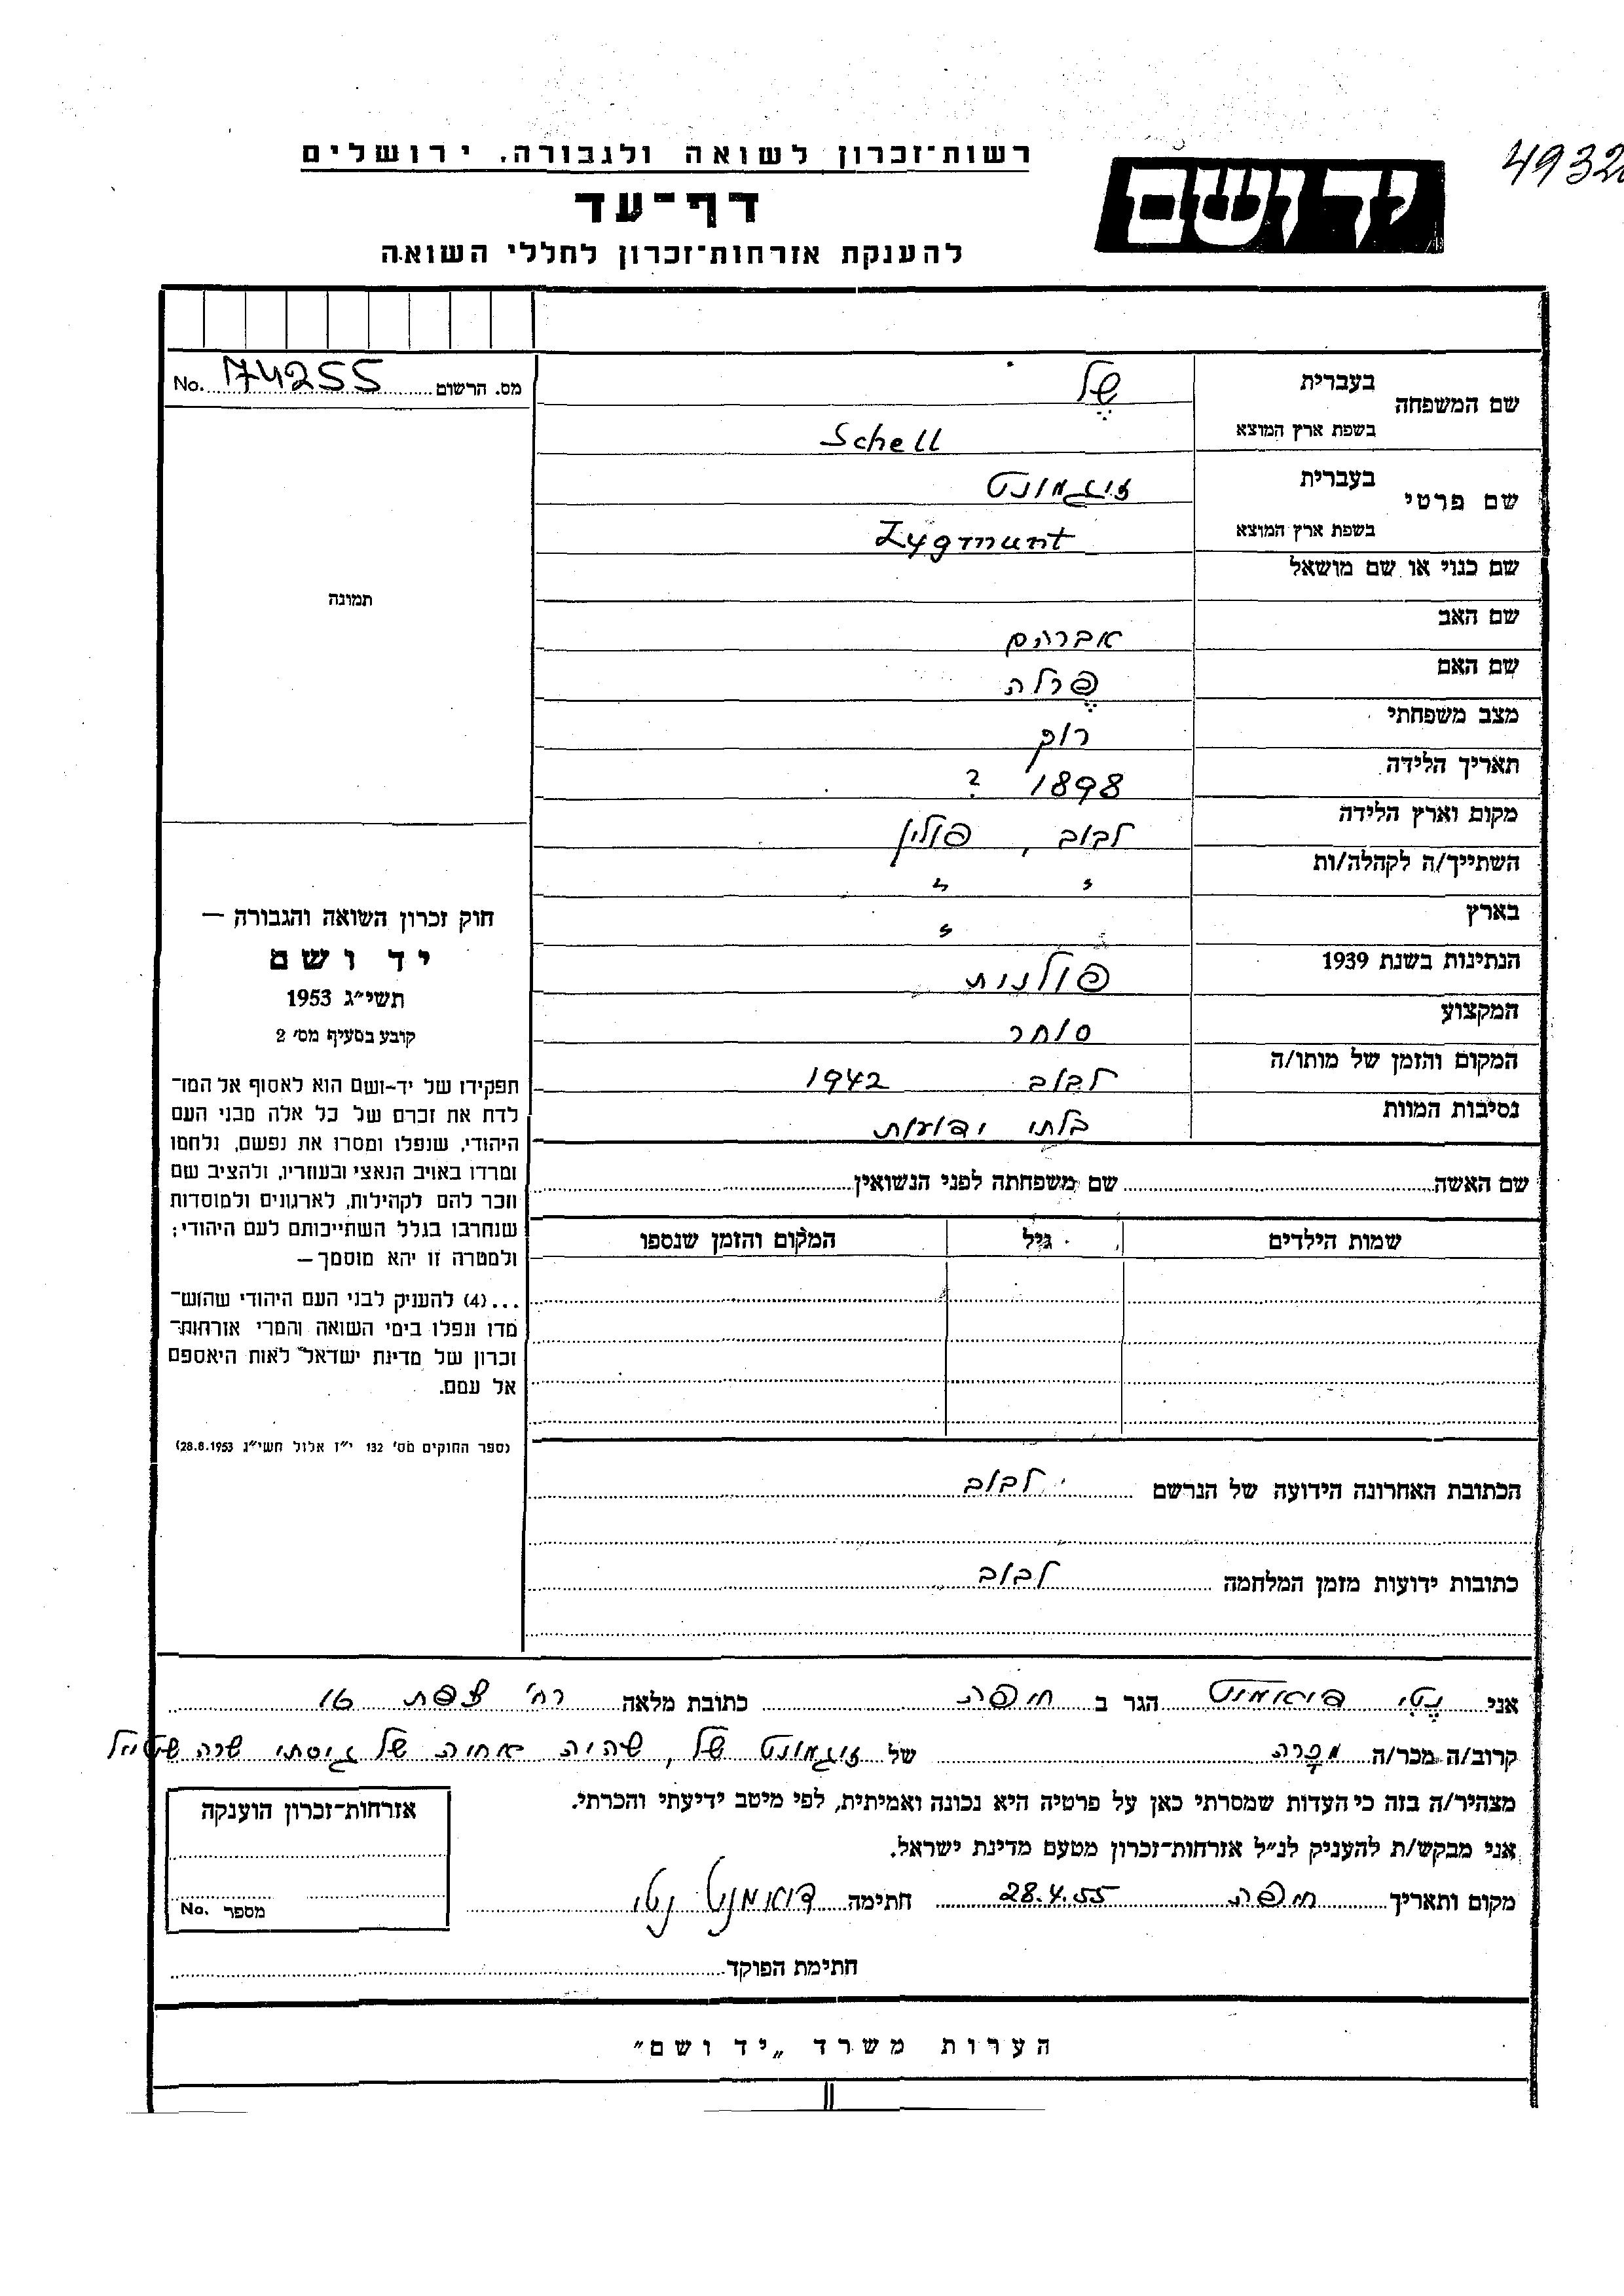 רשות־זכרון לשואה ולגבורה, ירושלים
יד ושם
דף־עד
להענקת אזרחות־זכרון לחללי השואה
מס. הרשום No. 174255
שם המשפחה בעברית שֶל
בשפת ארץ המוצא Schell
שם פרטי בעברית זיגמונט
בשפת ארץ המוצא Zygmunt
שם כנוי או שם מושאל
שם האב אברהם
שם האם פֶרלה
מצב משפחתי רווק
תאריך הלידה 1898 ?
מקום וארץ הלידה לבוב, פולין
השתייך/ה לקהלה/ות " "
בארץ "
הנתינות בשנת 1939 פולנית
המקצוע סוחר
המקום והזמן של מותו/ה לבוב 1942
נסיבות המוות בלתי ידועות
שם האשה שם משפחתה לפני הנשואין
שמות הילדים גיל המקום והזמן שנספו
הכתובת האחרונה הידועה של הנרשם לבוב
כתובות ידועות מזמן המלחמה לבוב
תמונה
חוק זכרון השואה והגבורה —
יד ושם
תשי״ג 1953
קובע בסעיף מס׳ 2
תפקידו של יד-ושם הוא לאסוף אל המו־
לדת את זכרם של כל אלה מבני העם
היהודי, שנפלו ומסרו את נפשם, נלחמו
ומרדו באויב הנאצי ובעוזריו, ולהציב שם
וזכר להם לקהילות, לארגונים ולמוסדות
שנחרבו בגלל השתייכותם לעם היהודי;
ולמטרה זו יהא מוסמך —
...(4) להעניק לבני העם היהודי שהוש־
מדו ונפלו בימי השואה והמרי אזרחות־
זכרון של מדינת ישראל לאות היאספם
אל עמם.
(ספר החוקים מס׳ 132 י״ז אלול תשי״ג 28.8.1953)
אני נֶטִי דיאמנט הגר ב חיפה כתובת מלאה רח׳ צפת 16
קרוב/ה מכר/ה מַכָּרה של זיגמונט של, שהיה אחיה של גיסתי שרה
מצהיר/ה בזה כי העדות שמסרתי כאן על פרטיה היא נכונה ואמיתית, לפי מיטב ידיעתי והכרתי.
אני מבקש/ת להעניק לנ״ל אזרחות־זכרון מטעם מדינת ישראל.
מקום ותאריך חיפה 28.4.55 חתימה דיאמנט נטי
אזרחות־זכרון הוענקה
מספר No.
חתימת הפוקד
הערות משרד „יד ושם״